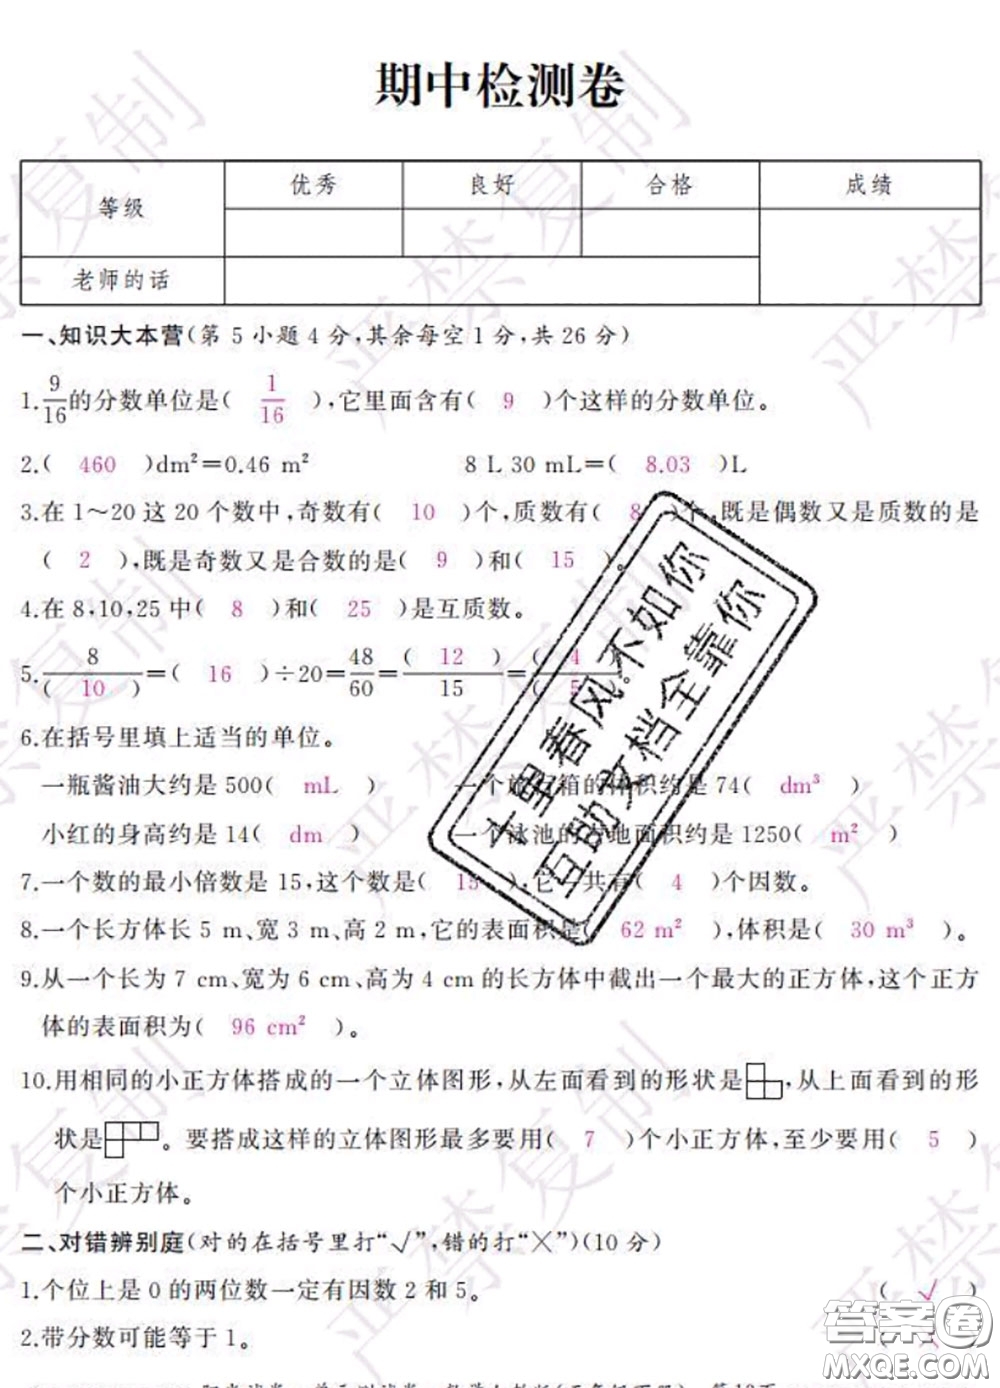 期中检测卷
等级 优秀 良好 合格 成绩
老师的话
一、知识大本营(第 5 小题 4 分,其余每空 1 分,共 26 分)
1. 9/16 的分数单位是( 1/16 ),它里面含有( 9 )个这样的分数单位。
2.( 460 )dm²=0.46 m² 8 L 30 mL=( 8.03 )L
3.在 1～20 这 20 个数中,奇数有( 10 )个,质数有( 8 )个,既是偶数又是质数的是
( 2 ),既是奇数又是合数的是( 9 )和( 15 )。
4.在 8,10,25 中( 8 )和( 25 )是互质数。
5. 8/( 10 )=( 16 )÷20=48/60=( 12 )/15=( 4 )/( 5 )
6.在括号里填上适当的单位。
一瓶酱油大约是 500( mL ) 一个旅行箱的体积约是 74( dm³ )
小红的身高约是 14( dm ) 一个泳池的占地面积约是 1250( m² )
7.一个数的最小倍数是 15,这个数是( 15 ),它一共有( 4 )个因数。
8.一个长方体长 5 m、宽 3 m、高 2 m,它的表面积是( 62 m² ),体积是( 30 m³ )。
9.从一个长为 7 cm、宽为 6 cm、高为 4 cm 的长方体中截出一个最大的正方体,这个正方
体的表面积为( 96 cm² )。
10.用相同的小正方体搭成的一个立体图形,从左面看到的形状是 ,从上面看到的形
状是 。要搭成这样的立体图形最多要用( 7 )个小正方体,至少要用( 5 )
个小正方体。
二、对错辨别庭(对的在括号里打“√”,错的打“×”)(10 分)
1.个位上是 0 的两位数一定有因数 2 和 5。 ( √ )
2.带分数可能等于 1。
十里春风.不如你
百的文档全靠你
严禁复制
严禁复制
严禁复制
答案圈
MXQE.COM